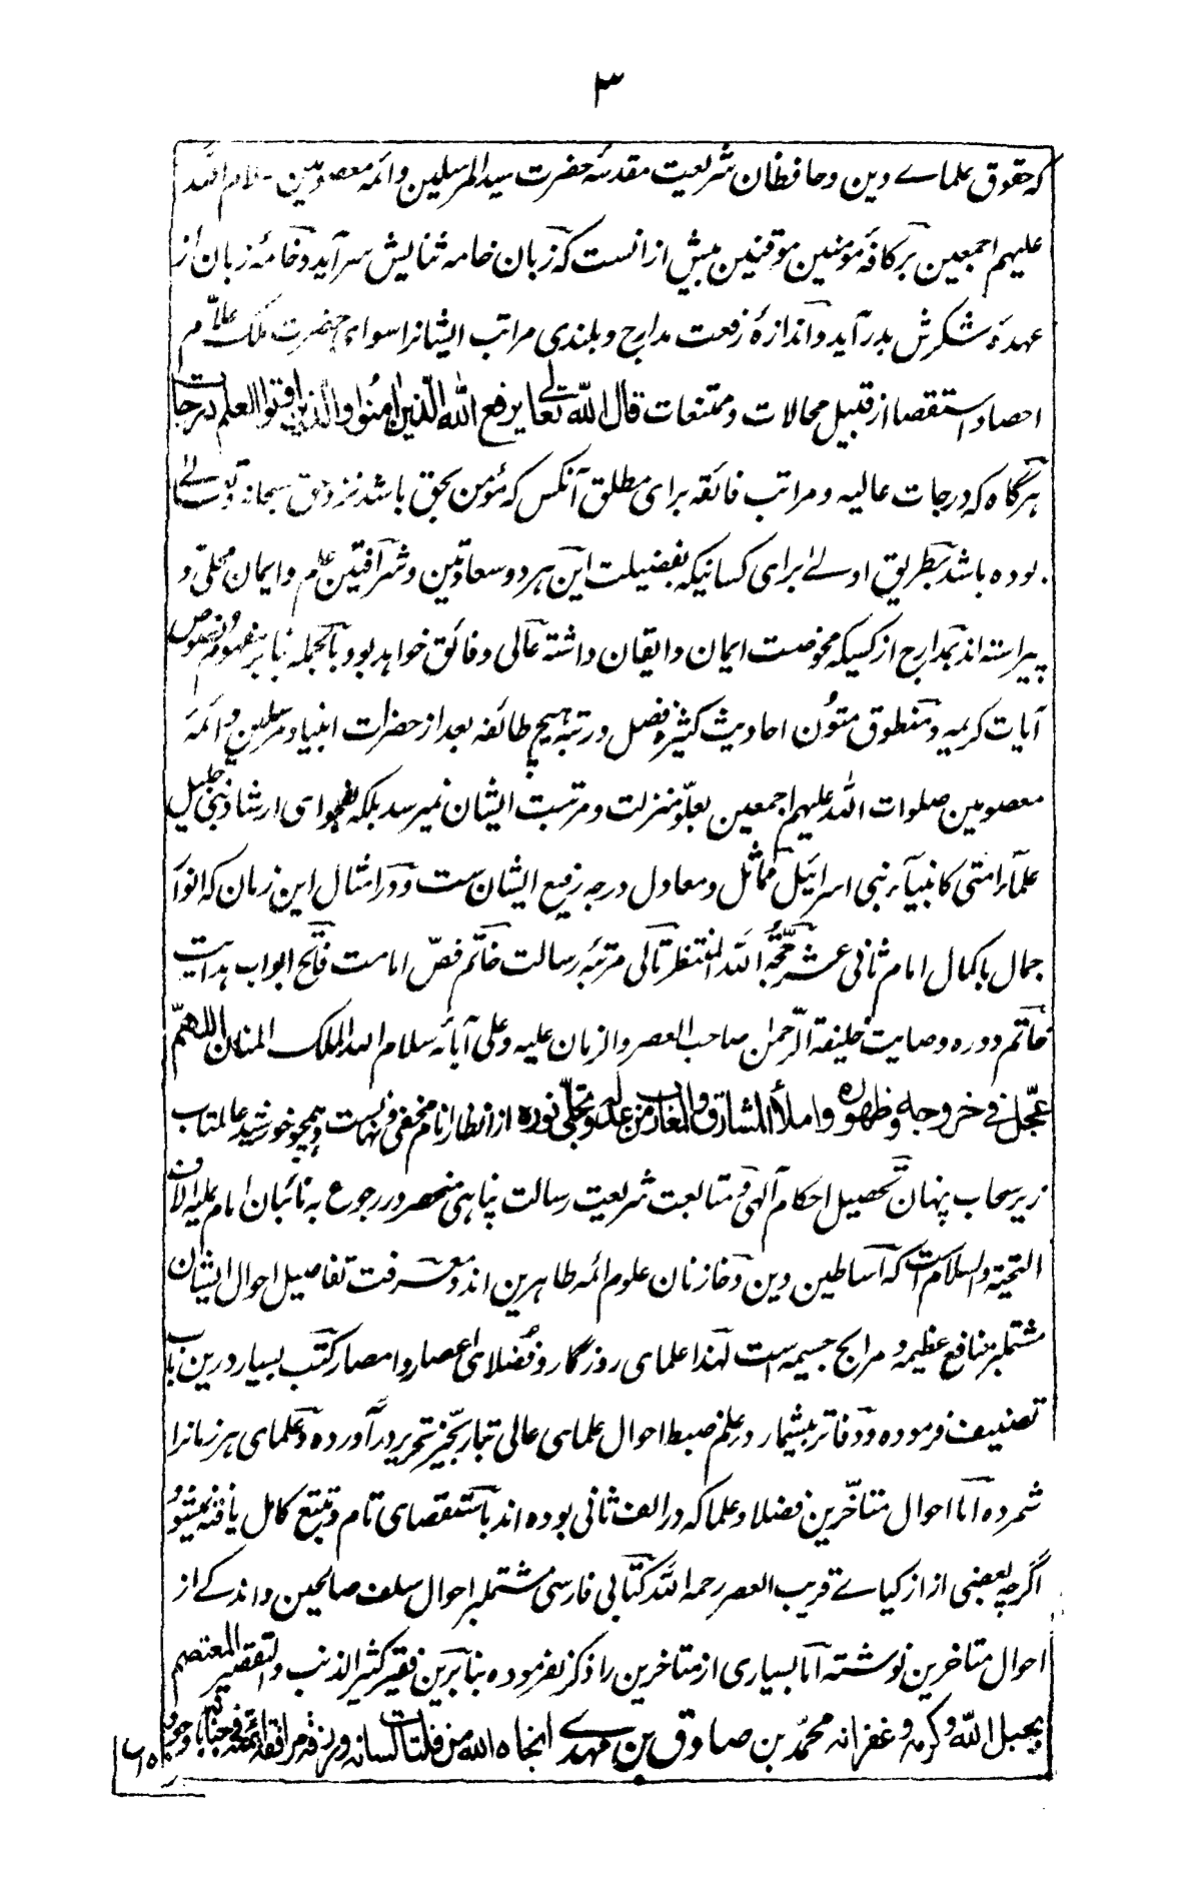 ۳
کہ حقوق علماے دین و حافظان شریعت مقدسۂ حضرت سید المرسلین و ائمہ معصومین سلام اللہ
علیہم اجمعین بر کافۂ مومنین موقنین بیش ازانست کہ زبان خامہ ثنایش سرآید و خامۂ زبان از
عہدۂ شکرش بدر آید و اندازۂ رفعت مدارج و بلندی مراتب ایشانرا سوای حضرت ملک علام
احصا و استقصا از قبیل محالات و ممتنعات قال اللّٰہ تعالی یرفع اللہ الّذین اٰمنُوا والذین اوتوا العلم درجات
ہرگاہ کہ درجات عالیہ و مراتب فائقہ برای مطلق آنکس کہ مؤمن بحق باشد نزد حق سبحانہ و تعالے
بودہ باشد بطریق اولےٰ برای کسانیکہ بفضیلت این ہر دو سعادتین و شرافتین علم و ایمان محلّی و
پیراستہ اند بمدارج از کسیکہ محوضت ایمان و ایقان داشتہ عالی و فائق خواہد بود بالجملہ بنا بر مفہوم نصوص
آیات کریمہ و منطوق متُون احادیث کثیرہ فضل و رتبہ ہیچ طائفہ بعد از حضرات انبیا و مرسلین و ائمۂ
معصومین صلوات اللہ علیہم اجمعین بعلّو منزلت و مرتبت ایشان نمیرسد بلکہ بفحوای ارشاد نبی جلیل
علمآء امّتی کانبیآء بنی اسرائیل مماثل و معادل درجہ رفیع ایشان ست و در امثال این زمان کہ انوار
جمال باکمال امام ثانی عشر حجّۃ اللہ المنتظر تالی مرتبۂ رسالت خاتم فصّ امامت فاتح ابواب ہدایت
خاتم دورہ وصایت خلیفۃ الرّحمٰن صاحب العصر والزمان علیہ و علی آبائہ سلام اللہ الملک المنان اللہمّ
عجّل فی خروجہ وظہورہ واملأ المشارق والمغارب من عدلہ وتجلّی نورہ از انظار انام مخفی و نہانست و ہمچو خورشید عالمتاب
زیر سحاب پنہان تحصیل احکام آلہی و متابعت شریعت رسالت پناہی منحصر در رجوع بہ نائبان امام علیہ آلاف
التحیۃ والسلام است کہ اساطین دین و خازنان علوم ائمہ طاہرین اند و معرفت تفاصیل احوال ایشان
مشتملبر منافع عظیمہ و مرابح جسیمہ است لہٰذا علمای روزگار و فضلای اعصار و امصار کتب بسیار درین باب
تصنیف فرمودہ و دفاتر بیشمار در علم ضبط احوال علمای عالی تبار بحیّز تحریر در آوردہ و علمای ہر زمانرا
شمردہ امّا احوال متاخّرین فضلا و علما کہ در الف ثانی بودہ اند باستقصای تام و تتبّع کامل یافتہ نمیشود
اگرچہ بعضی از ازکیاے قریب العصر رحمہ اللہ کتابی فارسی مشتملبر احوال سلف صالحین و اندکے از
احوال متاخرین نوشتہ امّا بسیاری از متاخرین را ذکر نفرمودہ بنابرین فقیر کثیر الذنب والتقصیر المعتصم
بحبل اللّہ وکرمہ وغفرانہ محمّد بن صادق بن مہدے انجاہ اللہ من فلتات لسانہ ورزقہ مرافقۃ ائمتہ فی جنانہ با وجود